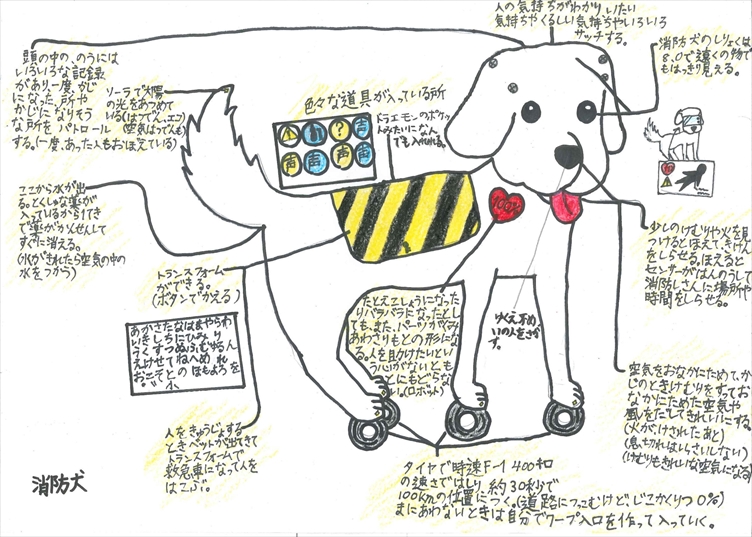 人の気持ちがわかりいたい
気持ちやくるしい気持ちやいろいろ
サッチする。
頭の中の、のうには
いろいろな記録
があり一度、かじ
になった所や
かじになりそう
な所をパトロール
する。(一度、あった人もおぼえている)
ソーラで太陽
の光をあつめて
いる(はつでん、エコ)
(空気はつでんも)
色々な道具が入っている所
ドラエモンのポケッ
トみたいになん
でも入れれる。
声
?
声
声
声
声
消防犬のしりょくは
8.0で遠くの物で
もはっきり見える。
ここから水が出
る。とくしゅな薬が
入っているから1てき
で薬がかくさんして
すぐに消える。
(水がきれたら空気の中の
水をつかう)
トランスフォーム
ができる。
(ボタンでかえる)
100%
少しのけむりや火を見
つけるとほえて、きけん
をしらせる。ほえると
センサーがはんのうして
消防しさんに場所や
時間をしらせる。
たとえこしょうになった
りバラバラになったとし
ても、また、パーツがくみ
あわさりもとの形にな
る。人を助けたいとい
う心がないともと
にもどらな
い。(ロボット)
ゆくえ不め
いの人をさが
す。
あかさたなはまやらわ
いきしちにひみ り
うくすつぬふむゆるん
えけせてねへめ れ
おこそとのほもよろを
人をきゅうじょする
ときベットが出てきて
トランスフォームで
救急車になって人を
はこぶ。
空気をおなかにためて、か
じのときけむりをすって
おなかにためた空気や
風をだしてきれいにする。
(火が、けされたあと)
(息切れはいっさいしない)
(けむりもきれいな空気になる)
タイヤで時速F-1 400キロ
の速さではしり、約30秒で
100kmの位置につく。(道路につっこむけど、じこかくりつ0%)
まにあわないときは自分でワープ入口を作って入っていく。
消防犬